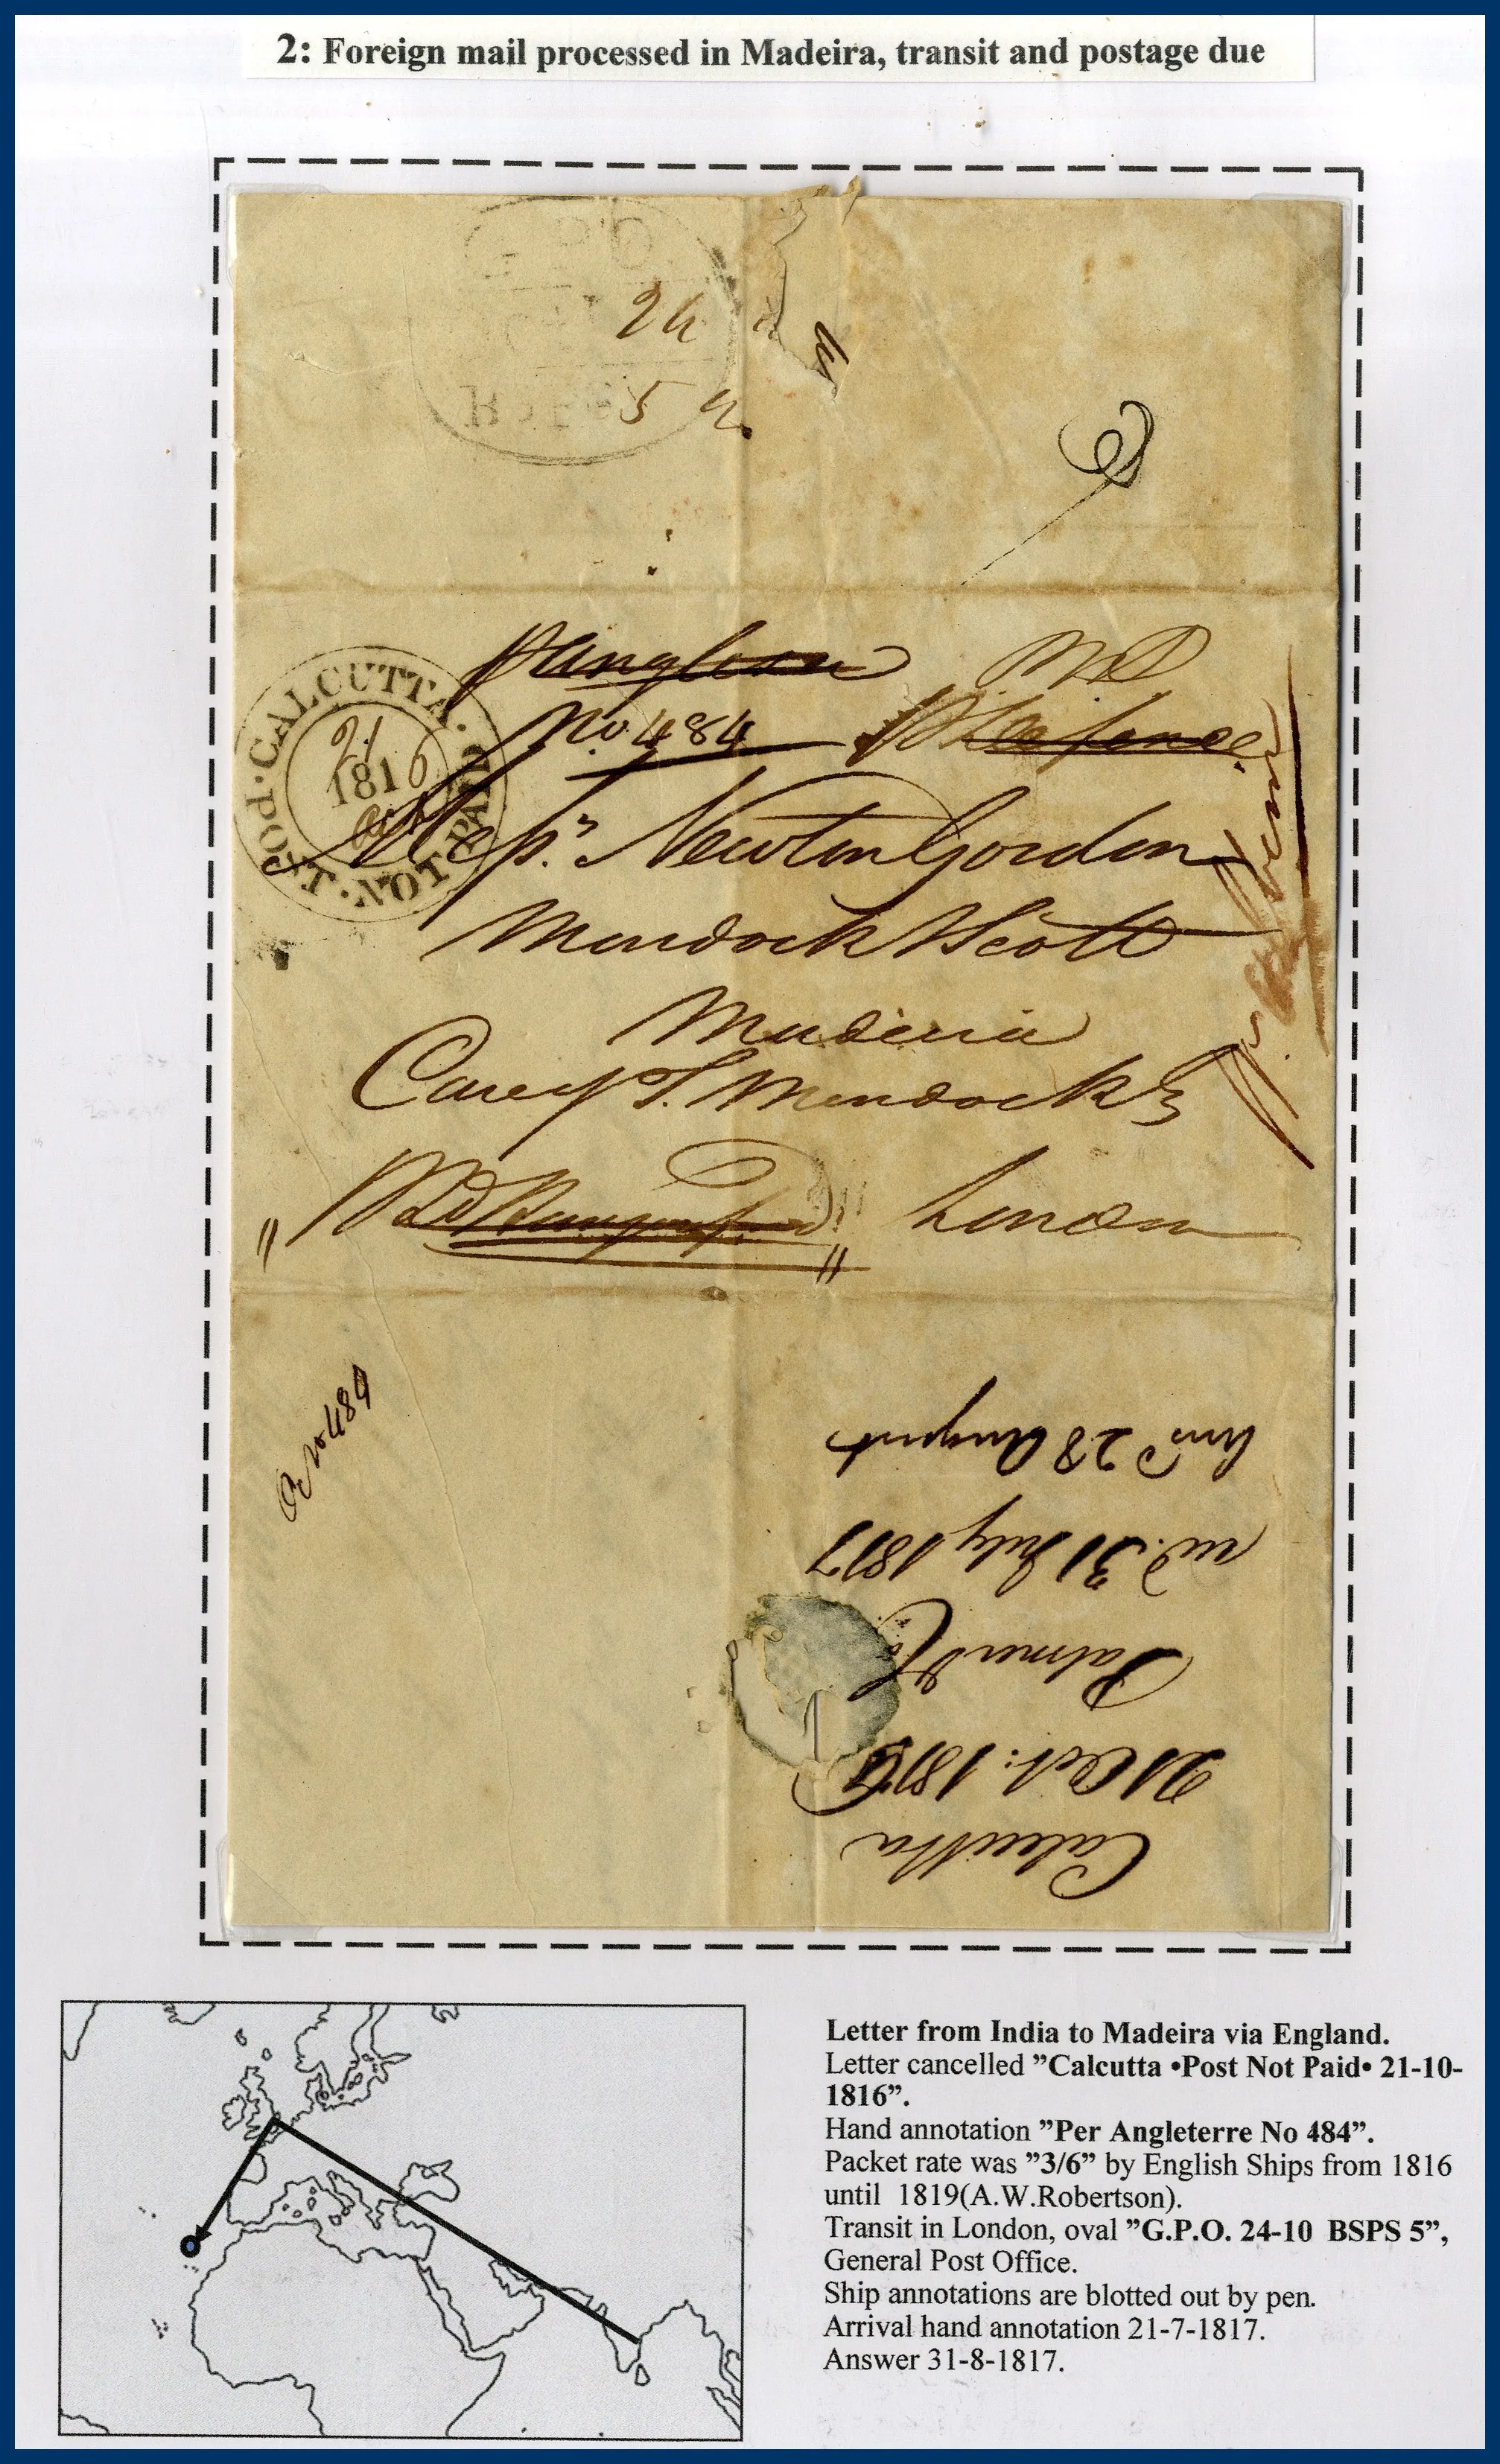 2: Foreign mail processed in Madeira, transit and postage due
G P O
24
5
No. 484
CALCUTTA. POST. NOT PAID
21
1816
Oct
Newton Gordon
Murdoch & Scott
Madeira
Care of T. Murdoch
London
No 484
Calcutta
21 Oct: 1816
Palmer & Co
rec. 31 July 1817
Ansd 28 August
Letter from India to Madeira via England.
Letter cancelled ”Calcutta •Post Not Paid• 21-10-
1816”.
Hand annotation ”Per Angleterre No 484”.
Packet rate was ”3/6” by English Ships from 1816
until 1819(A.W.Robertson).
Transit in London, oval ”G.P.O. 24-10 BSPS 5”,
General Post Office.
Ship annotations are blotted out by pen.
Arrival hand annotation 21-7-1817.
Answer 31-8-1817.